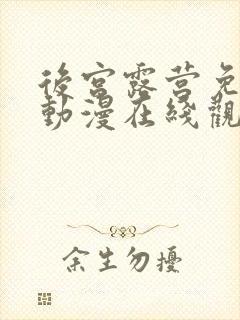 後宮露营免
動漫在綫觀
余生勿擾